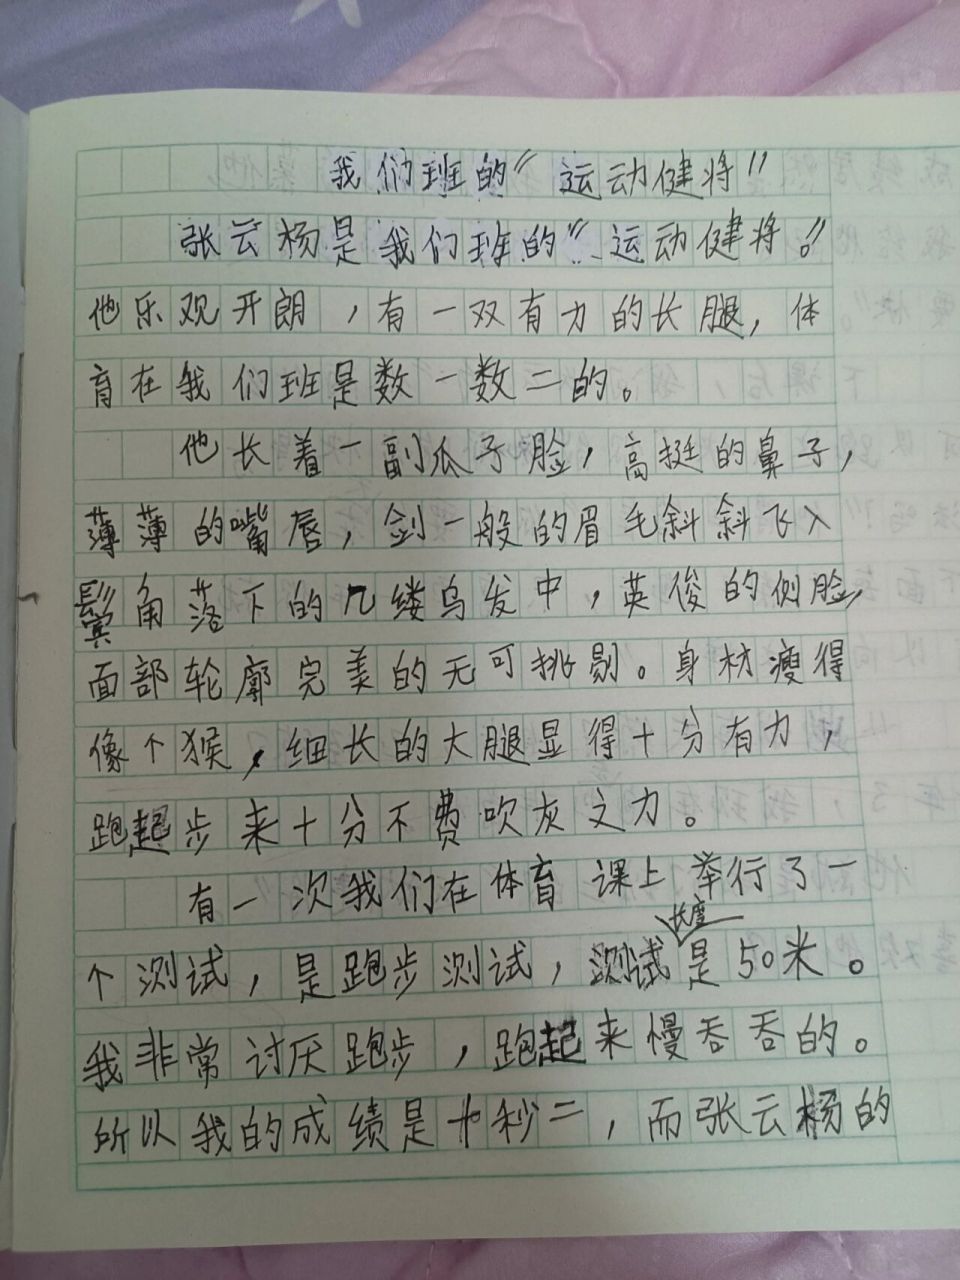 我们班的“运动健将”
张云杨是我们班的“运动健将。”
他乐观开朗，有一双有力的长腿，体
育在我们班是数一数二的。
他长着一副瓜子脸，高挺的鼻子，
薄薄的嘴唇，剑一般的眉毛斜斜飞入
鬓角落下的几缕乌发中，英俊的侧脸，
面部轮廓完美的无可挑剔。身材瘦得
像个猴，细长的大腿显得十分有力，
跑起步来十分不费吹灰之力。
有一次我们在体育课上举行了一
长度
个测试，是跑步测试，测试是50米。
我非常讨厌跑步，跑起来慢吞吞的。
所以我的成绩是十秒二，而张云杨的